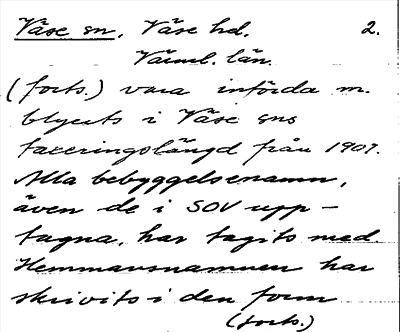 Väse sn, Väse hd. 2.
Värml. län.
(forts.) vara införda m.
blyerts i Väse sns
taxeringslängd från 1909.
Alla bebyggelsenamn,
även de i SOV upp-
tagna, har tagits med.
Hemmansnamnen har
skrivits i den form
(forts.)